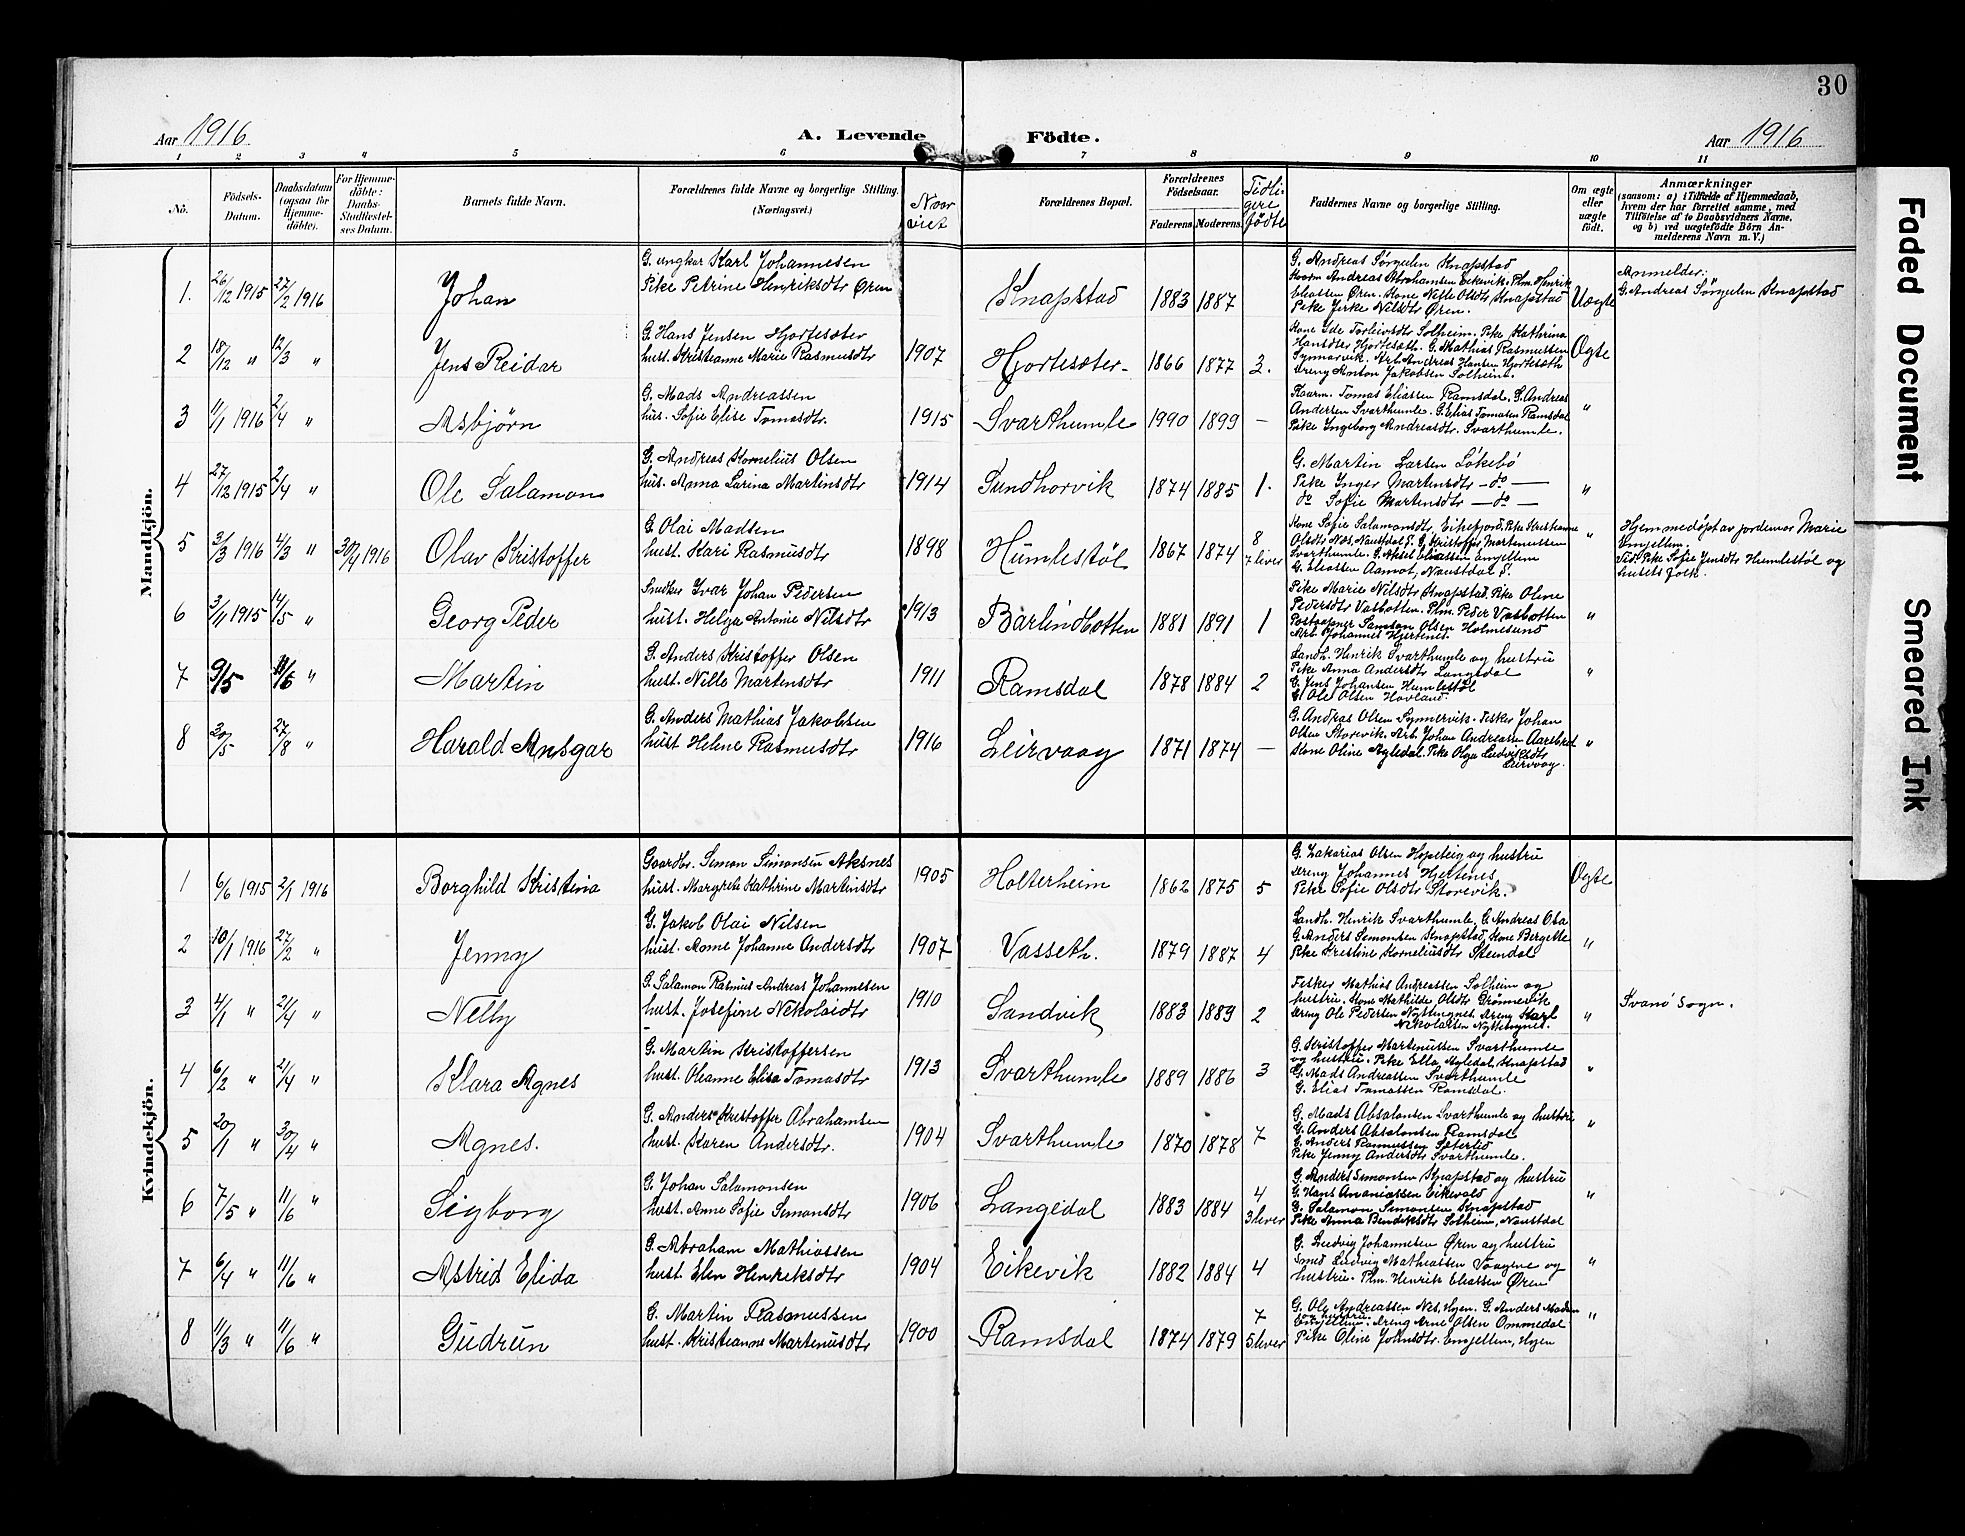 30
Aar 1916
A. Levende Födte.
Aar 1916
1 2 3 4 5 6 7 8 9 10 11
No.
Födsels-Datum.
Daabsdatum (ogsaa for Hjemme-döbte).
For Hjemme-döbte: Daabs-Stadfæstel-ses Datum.
Barnets fulde Navn.
Forældrenes fulde Navne og borgerlige Stilling. (Næringsvei.)
Naar viet
Forældrenes Bopæl.
Forældrenes Födselsaar.
Faderens. Moderens.
Tidli-gere födte
Faddernes Navne og borgerlige Stilling.
Om ægte eller uægte födt.
Anmærkninger
(saasom: a) i Tilfælde af Hjemmedaab,
hvem der har forrettet samme, med
Tilföielse af to Daabsvidners Navne.
og b) ved uægtefödte Börn An-
melderens Navn m. V.)
Mandkjön.
1. 26/12 1915 27/2 1916 Johan
G. ungkar Karl Johannesen
Pike Petrine Henriksdtr Øren
Knapstad 1883 1887
G. Andreas Sørgulen Knapstad
Kaarm. Andreas Abrahamsen Eikevik. Plm. Henrik
Eliassen Øren. Kone Nille Olsdtr Knapstad
Pike Jirke Nilsdtr Øren.
Uægte
Anmelder:
G. Andreas Sørgulen Knapstad
2 18/12 " 12/3 " Jens Reidar
G. Hans Jensen Hjortesæter
hust. Kristianne Marie Rasmusdtr
1907 Hjortesæter 1866 1877 2.
Kone Ide Torleivsdtr Solheim. Pike Kathrina
Hansdtr Hjortesæth. G. Mathias Rasmussen
Synnarvik. Arb. Andreas Hansen Hjortesæth
Dreng Anton Jakobsen Solheim.
Ægte
3 11/1 1916 2/4 " Asbjørn
G. Mads Andreassen
hus. Sofie Elise Tomasdtr.
1915 Svarthumle 1990 1899 —
Kaarm. Tomas Eliassen Ramsdal. G. Andreas
Andersen Svarthumle. G. Elias Tomasen Ramsdal
Pike Ingeborg Andreasdtr. Svarthumle.
"
4 27/12 1915 2/4 " Ole Salamon
G. Andreas Kornelius Olsen
hus. Anna Larina Martinsdtr
1914 Sundhorvik 1874 1885 1.
G. Martin Larsen Løkebø
Pike Inger Martensdtr — do —
do Sofie Martensdtr — do —
"
5 3/3 1916 4/3 " 30/4 1916 Olav Kristoffer
G. Olai Madsen
hust. Kari Rasmusdtr
1898 Humlestøl 1867 1874 8 7 lever
Kone Sofie Salamonsdtr, Eikefjord. Pike Kristianne
Olsdtr Næs, Naustdal P. G. Kristoffer Martenussen
Svarthumle. G. Aksel Eliassen Emjellem
G. Eliassen Aamot, Naustdal P.
"
Hjemmedøpt av jordemor Marie
Emjellem.
Vid. Pike Sofie Jensdtr Humlestøl og
husets folk.
6 3/11 1915 14/5 " Georg Peder
Snedker Ivar Johan Pedersen
hust. Helga Antonie Nilsdtr
1913 Barlindbotten 1881 1891 1
Pike Marie Nilsdtr Knapstad, Pike Oline
Pedersdtr Vasbotten. Plm. Peder Vasbotten
Postaapner Samson Olsen Holmesund
Arb. Johannes Hjertenes.
"
7 9/5 11/6 " Martin
G. Anders Kristoffer Olsen
hust. Nille Martensdtr
1911 Ramsdal 1878 1884 2
Landh. Henrik Svarthumle og hustru
Pike Anna Andersdtr Langedal
G. Jens Johansen Humlestøl
G. Ole Olsen Hovland.
"
8 30/5 27/8 " Harald Ansgar
G. Anders Mathias Jakobsen
hust Helene Rasmusdtr
1916 Leirvaag 1871 1874 —
G. Andras Olsen Synnervik. Fisker Johan
Olsen Storevik. Arb. Johan Andreasen Aarebrot
Kone Oline Agledal. Pike Olga Ludviksdtr
Leirvaag.
"
Kvindekjön.
1 6/6 1915 2/1 1916 Borghild Kristina
Gaardbr. Simon Simonsen Aksnes
hust. Margrete Kathrine Martinsdtr
1905 Holterheim 1862 1875 5
G. Zakarias Olsen Hopeteig og hustru
Dreng Johannes Hjertenes
Pike Sofie Olsdtr Storevik.
Ægte
2 10/1 1916 27/2 " Jenny
G. Jakob Olai Nilsen
hust. Anne Johanne Andersdtr
1907 Vasseth. 1879 1887 4
Landh. Henrik Svarthumle, G. Andreas Ola
G. Anders Simonsen Knapstad, Kone Bergette
Pike Kristine Korneliusdtr Steindal
"
3 4/1 " 21/4 " Nelly
G. Salamon Rasmus Andreas Johannesen
hust. Josefine Nikolaidtr
1910 Sandvik 1883 1889 2
Fisker Mathias Andreassen Solheim og
hustru. Kone Mathilde Olsdtr Grønnevik
Dreng Ole Pedersen Nyttingnes. Dreng Karl
Nikolaisen Nyttingnes.
"
Svanø Sogn.
4 6/2 " 21/4 " Klara Agnes
G. Martin Kristoffersen
hust. Oleanne Elisa Tomasdtr
1913 Svarthumle 1889 1886 3
G. Kristoffer Martenussen Svarthumle
og hustru. Pike Ella Agledal, Knapstad
G. Mads Andreassen Svarthumle
G. Elias Tomassen Ramsdal.
"
5 20/1 " 30/4 " Agnes.
G. Anders Kristoffer Abrahamsen
hust. Karen Andersdtr.
1904 Svarthumle 1870 1878 7
G. Mads Absalonsen Svarthumle og hustru
G. Anders Absalonsen Ramsdal
G. Anders Rasmussen Seterlid
Pike Jenny Andersdtr Svarthumle.
"
6 7/5 " 11/6 " Sigborg
G. Johan Salamonsen
hust. Anne Sofie Simonsdtr
1906 Langedal 1883 1884 4 3 lever
G. Anders Simonsen Knapstad og hustru
G. Hans Ananiassen Eikevold
G. Salamon Simonsen Knapstad
Pike Anna Bendiksdtr Solheim, Naustdal
"
7 6/4 " 11/6 " Astrid Elida
G. Abraham Mathiassen
hust. Elen Henriksdtr
1904 Eikevik 1882 1884 4
G. Ludvig Johannesen Øren og hustru
Smed Ludvig Mathiassen Vaagene og
hustru. Plm. Henrik Eliassen Øren
"
8 11/3 " 11/6 " Gudrun
G. Martin Rasmussen
hust. Kristianne Martenusdtr
1900 Ramsdal 1874 1879 7 5 lever
G. Ole Andreassen Nes, Hyen. G. Anders Madsen
og hustru
Emjellem. Dreng Arne Olsen Ommedal
Pike Oline Johnsdtr. Emjellem, Hyen
"
Faded Document Smeared Ink